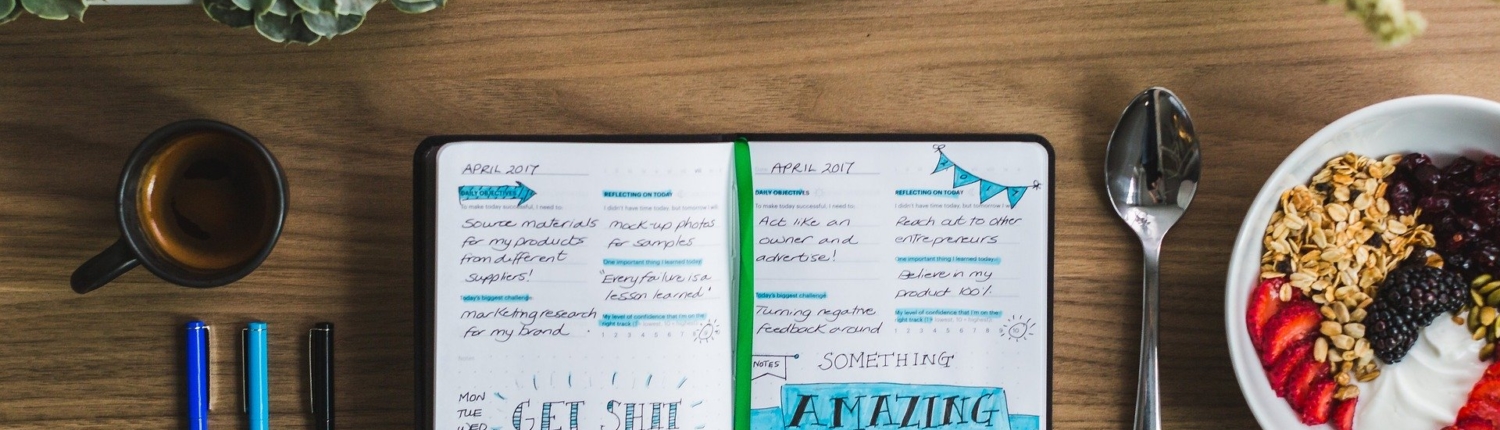 APRIL 2017
DAILY OBJECTIVES
To make today successful, I need to:
Source materials
for my products
from different
suppliers!
Today's biggest challenge
marketing research
for my brand
REFLECTING ON TODAY
I didn't have time today, but tomorrow I will
mock-up photos
for samples
One important thing I learned today
"Every failure is a
lesson learned"
My level of confidence that I'm on the
right track
MON
TUE
WED
GET SHIT
APRIL 2017
DAILY OBJECTIVES
To make today successful, I need to:
Act like an
owner and
advertise!
Today's biggest challenge
Turning negative
feedback around
REFLECTING ON TODAY
I didn't have time today, but tomorrow I
Reach out to other
entrepreneurs
One important thing I learned today
Believe in my
product 100%
My level of confidence that I'm on the
right track
NOTES
SOMETHING
AMAZING